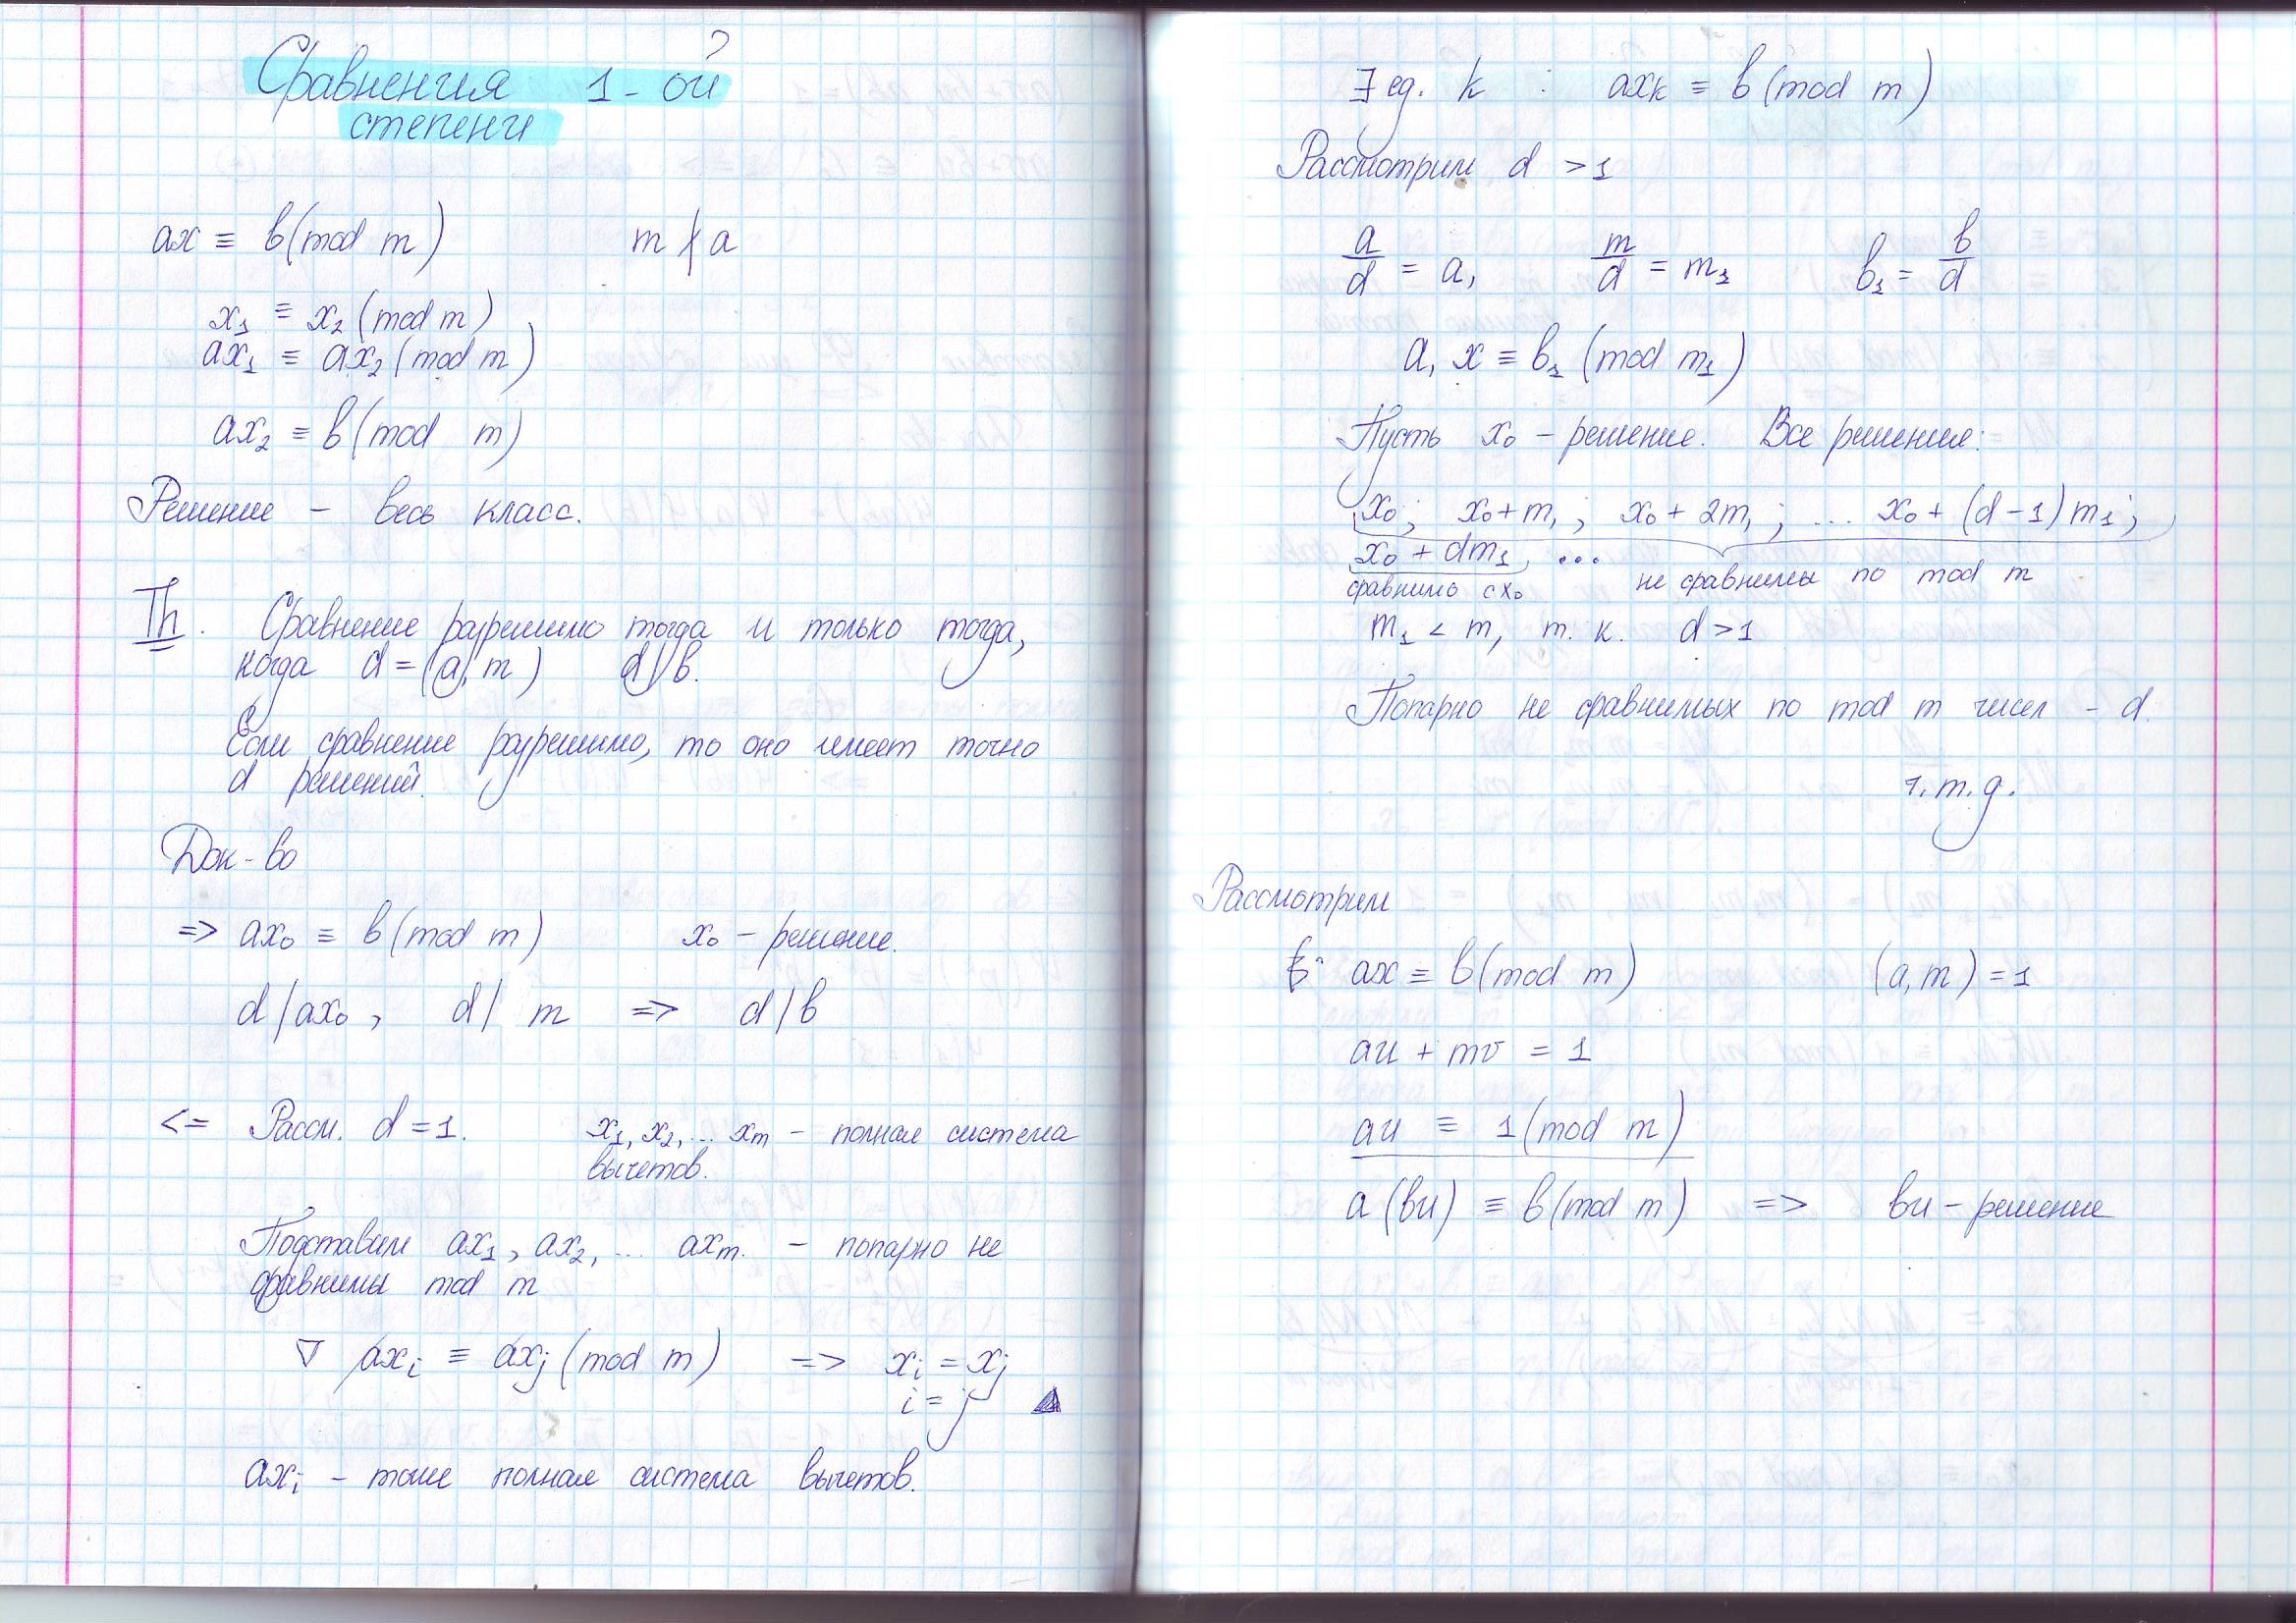 Сравнения 1-ой
степени
ax ≡ b (mod m) m ∤ a
x₁ ≡ x₂ (mod m)
ax₁ ≡ ax₂ (mod m)
ax₂ ≡ b (mod m)
Решение - весь класс.
Th. Сравнение разрешимо тогда и только тогда,
когда d = (a, m) d | b.
Если сравнение разрешимо, то оно имеет точно
d решений.
Док-во
=> ax₀ ≡ b (mod m) x₀ - решение.
d | ax₀, d | m => d | b
<= Рассм. d = 1. x₁, x₂, ... xₘ - полная система
вычетов.
Подставим ax₁, ax₂, ... axₘ. - попарно не
сравнимы mod m
∇ axᵢ ≡ axⱼ (mod m) => xᵢ = xⱼ
i = j ▲
axᵢ - тоже полная система вычетов.
∃ ед. k : axₖ ≡ b (mod m)
Рассмотрим d > 1
a/d = a₁ m/d = m₁ b₁ = b/d
a₁ x ≡ b₁ (mod m₁)
Пусть x₀ - решение. Все решения:
x₀; x₀ + m₁; x₀ + 2m₁; ... x₀ + (d-1) m₁;
x₀ + dm₁, ...
сравнимо с x₀ не сравнимы по mod m
m₁ < m, т. к. d > 1
Попарно не сравнимых по mod m чисел - d.
ч.т.д.
Рассмотрим
ax ≡ b (mod m) (a, m) = 1
au + mv = 1
au ≡ 1 (mod m)
a (bu) ≡ b (mod m) => bu - решение